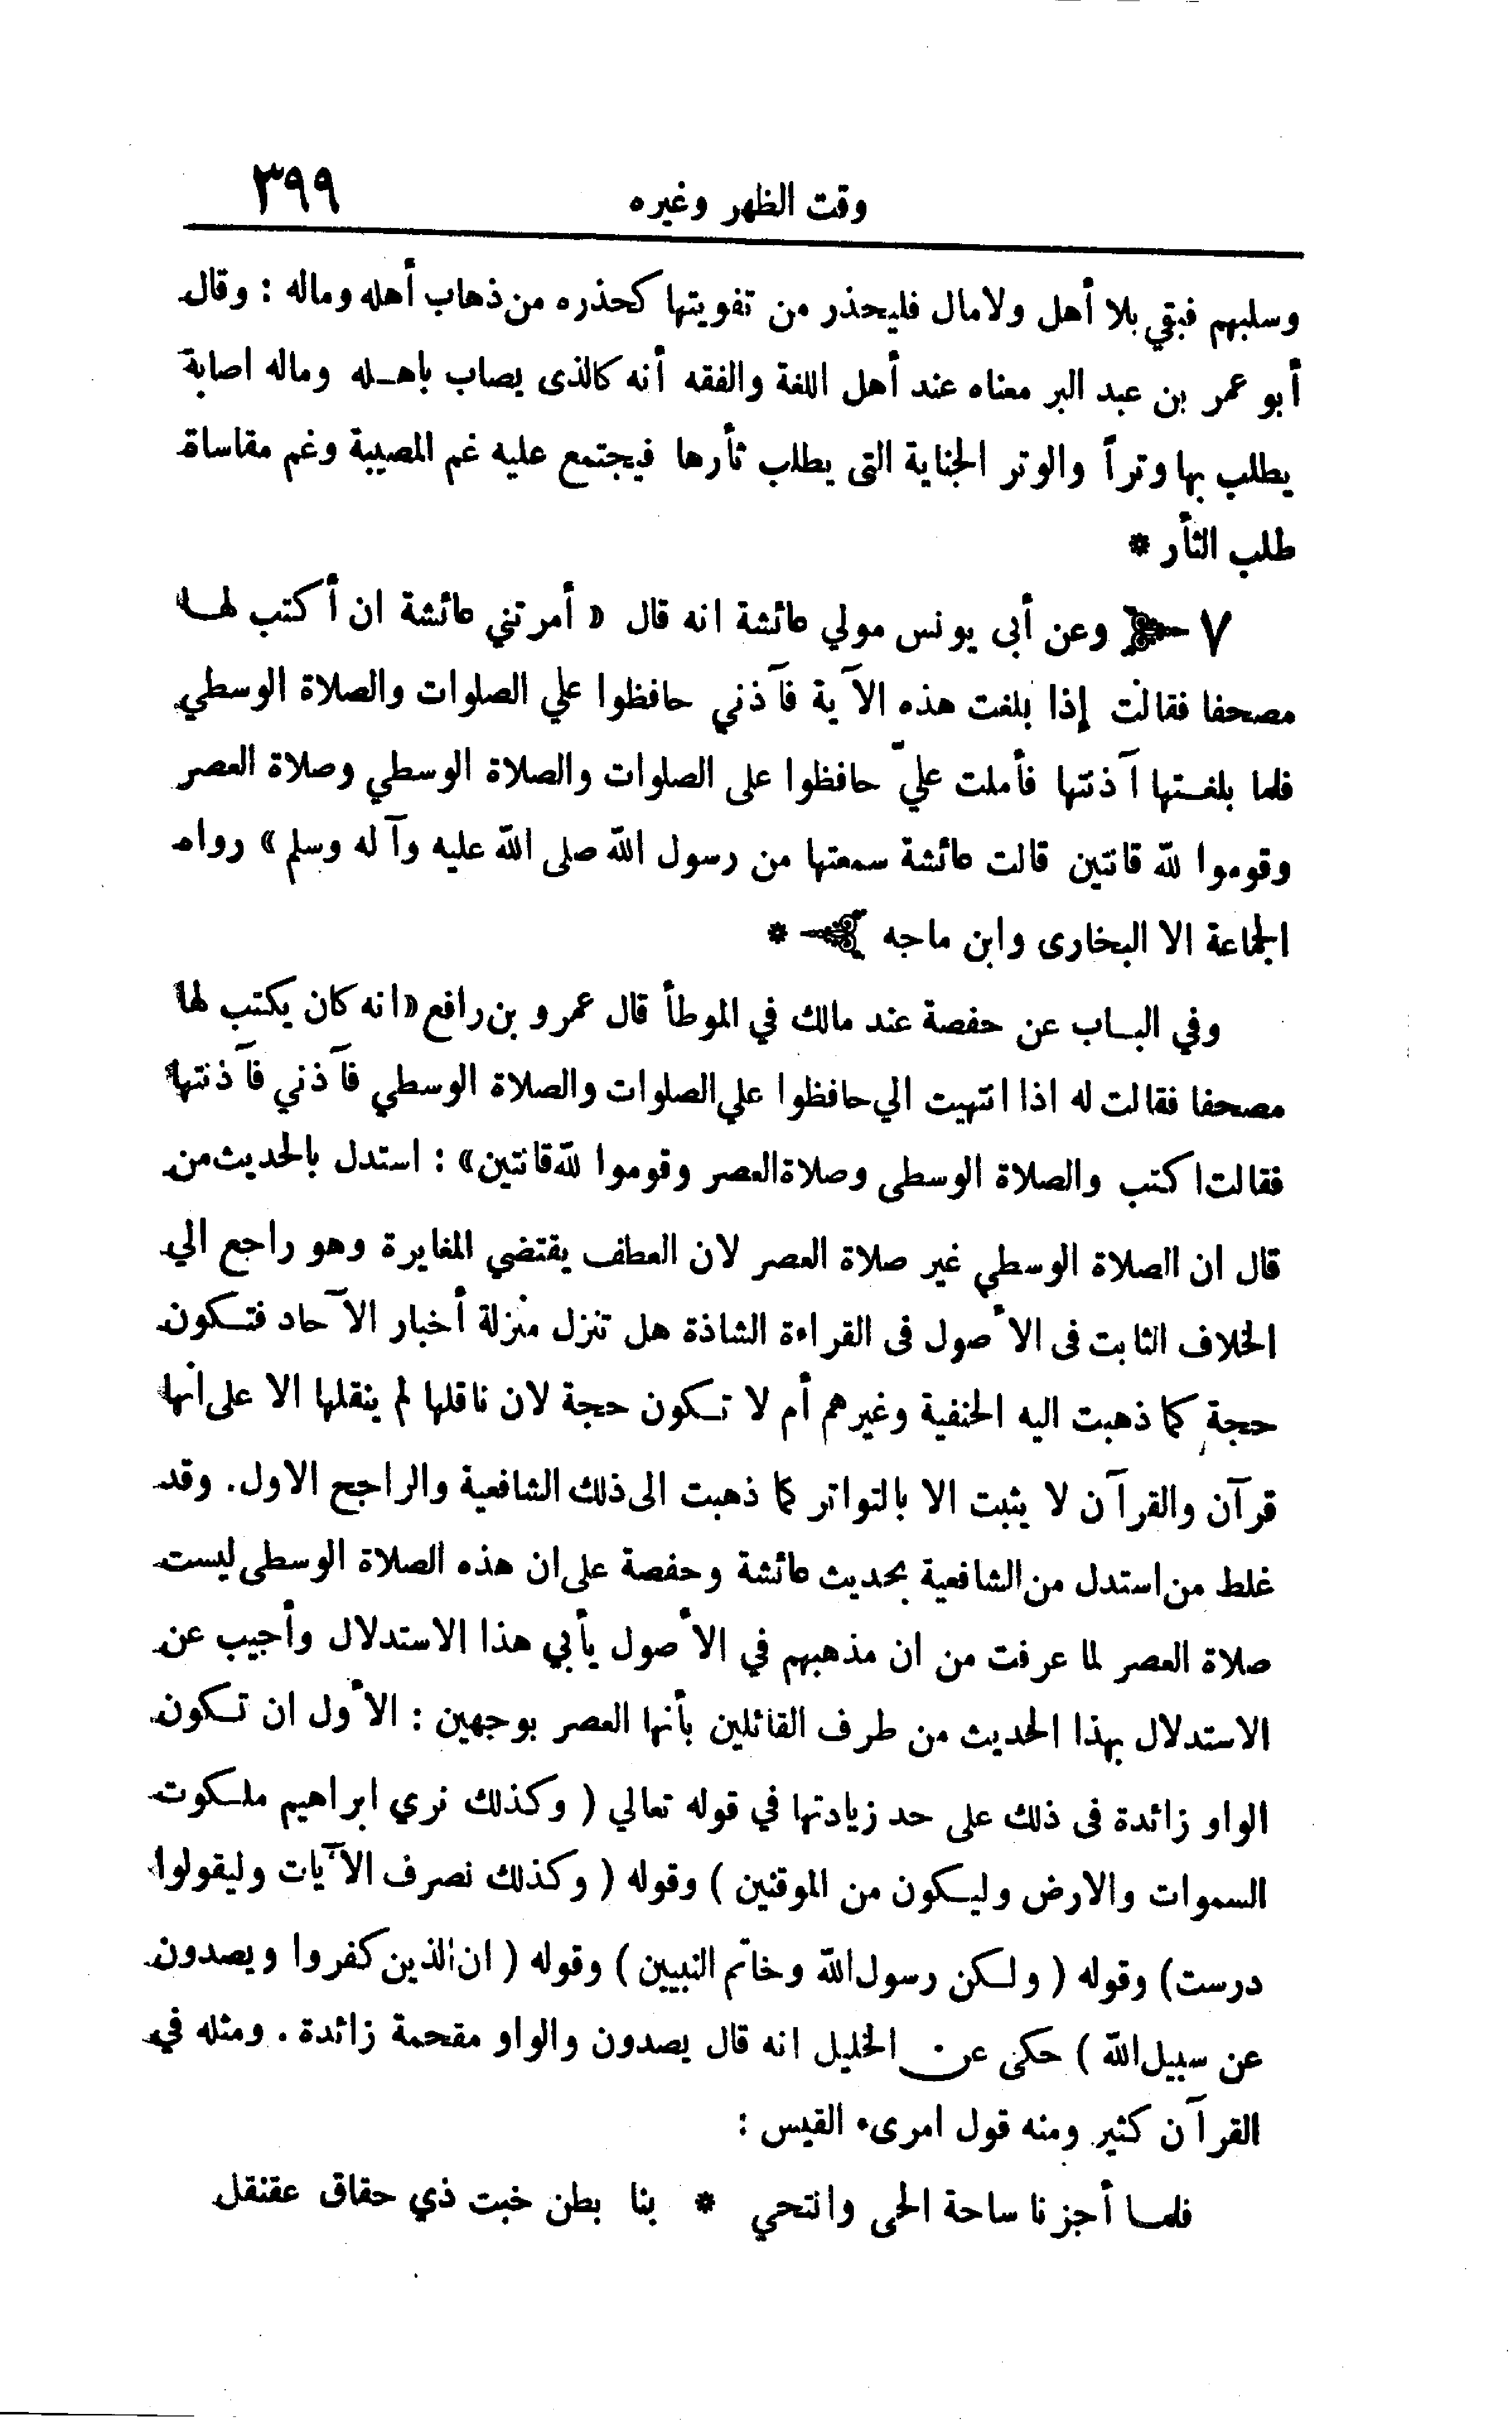 وقت الظهر وغيره ٣٩٩
وسلبهم فبقي بلا أهل ولامال فليحذر من تفويتها كحذره من ذهاب أهله وماله : وقال
أبو عمر بن عبد البر معناه عند أهل اللغة والفقه أنه كالذى يصاب باهـله وماله اصابة
يطلب بها وتراً والوتر الجناية التى يطلب ثأرها فيجتمع عليه غم المصيبة وغم مقاساة
طلب الثأر *
٧ وعن أبى يونس مولي عائشة انه قال « أمرتني عائشة ان أكتب لهـا
مصحفا فقالت إذا بلغت هذه الآية فآذني حافظوا علي الصلوات والصلاة الوسطي
فلما بلغـتها آذنتها فأملت عليّ حافظوا على الصلوات والصلاة الوسطي وصلاة العصر
وقوموا لله قانتين قالت عائشة سمعتها من رسول الله صلى الله عليه وآله وسلم » رواه
الجماعة الا البخارى وابن ماجه *
وفي البـاب عن حفصة عند مالك في الموطأ قال عمرو بن رافع «انه كان يكتب لها
مصحفا فقالت له اذا انتهيت الي حافظوا علي الصلوات والصلاة الوسطي فآذني فآذنتها
فقالت اكتب والصلاة الوسطى وصلاة العصر وقوموا لله قانتين» : استدل بالحديث من
قال ان الصلاة الوسطي غير صلاة العصر لان العطف يقتضي المغايرة وهو راجع الي
الخلاف الثابت فى الأصول فى القراءة الشاذة هل تنزل منزلة أخبار الآحاد فتـكون
حجة كما ذهبت اليه الحنفية وغيرهم أم لا تـكون حجة لان ناقلها لم ينقلها الا على انها
قرآن والقرآن لا يثبت الا بالتواتر كما ذهبت الى ذلك الشافعية والراجح الاول. وقد
غلط من استدل من الشافعية بحديث عائشة وحفصة على ان هذه الصلاة الوسطى ليست
صلاة العصر لما عرفت من ان مذهبهم في الأصول يأبي هذا الاستدلال وأجيب عن
الاستدلال بهذا الحديث من طرف القائلين بأنها العصر بوجهين : الأول ان تـكون
الواو زائدة فى ذلك على حد زيادتها في قوله تعالي ( وكذلك نري ابراهيم ملـكوت
السموات والارض وليـكون من الموقنين ) وقوله ( وكذلك نصرف الآيات وليقولوا
درست) وقوله ( ولـكن رسول الله وخاتم النبيين ) وقوله ( ان الذين كفروا ويصدون
عن سبيل الله ) حكى عن الخليل انه قال يصدون والواو مقحمة زائدة . ومثله في
القرآن كثير ومنه قول امرىء القيس :
فلمـا أجزنا ساحة الحى وانتحي * بنا بطن خبت ذي حقاق عقنقل